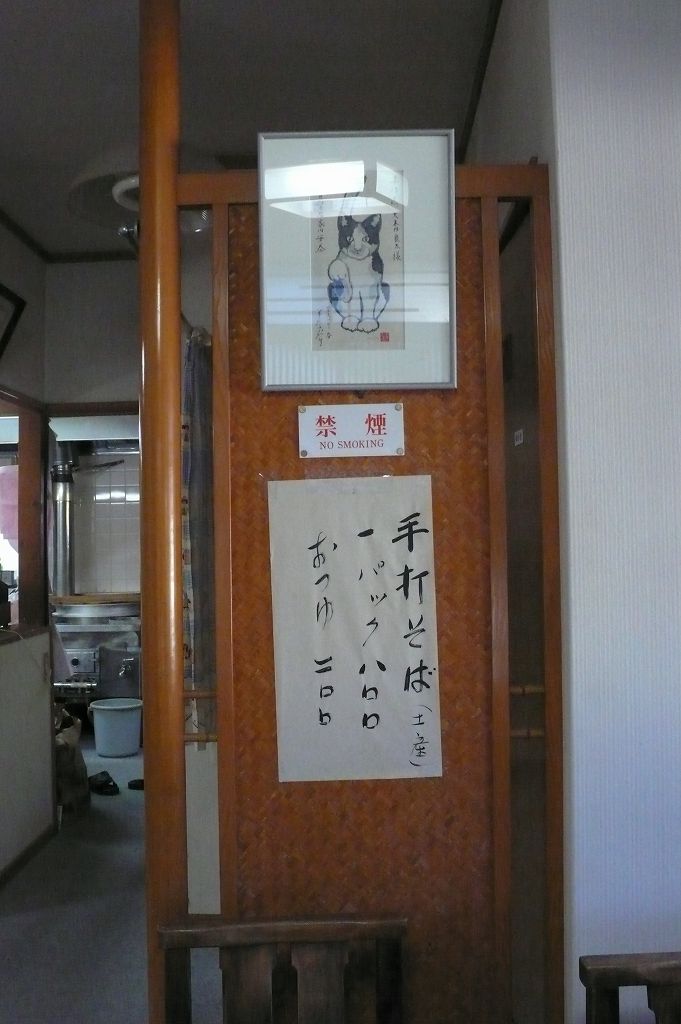 禁煙
NO SMOKING
手打そば(土産)
一パック八〇〇
おつゆ 二〇〇